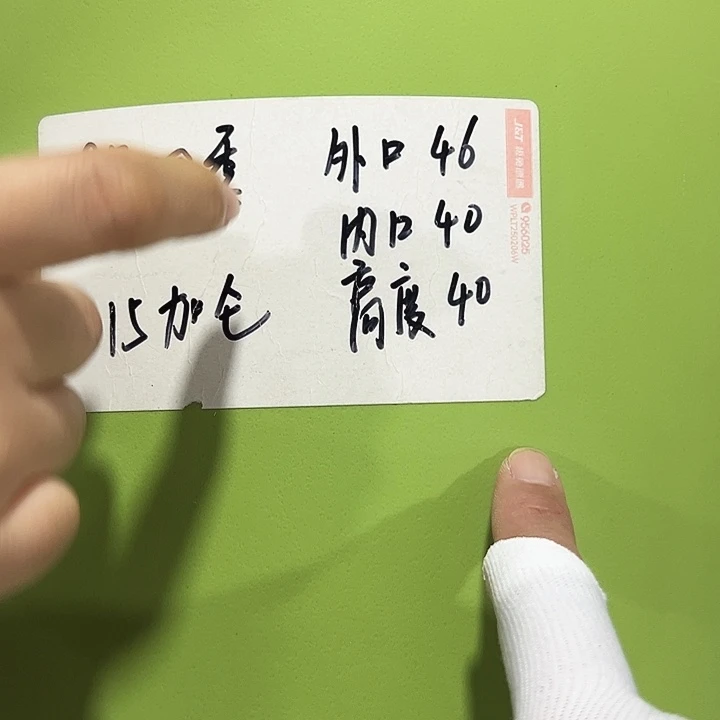 重
15加仑
外口 46
内口 40
高度 40
J&T 极兔速递
956025
WPLT250206W